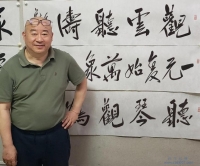 觀雲聽濤
一元復始萬象
聽琴觀